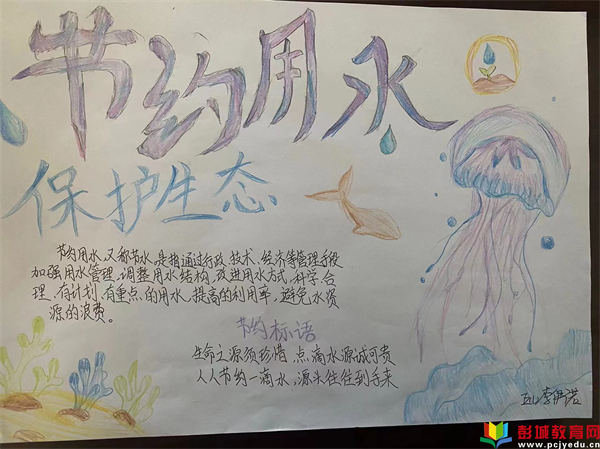 节约用水
保护生态
节约用水,又称节水,是指通过行政、技术、经济等管理手段
加强用水管理,调整用水结构,改进用水方式,科学合
理、有计划、有重点的用水,提高的利用率,避免水资
源的浪费。
节约标语
生命之源须珍惜 点滴水源诚可贵
人人节约一滴水,源头往往到手来
五(1)李伊诺
彭城教育网
www.pcjyedu.cn